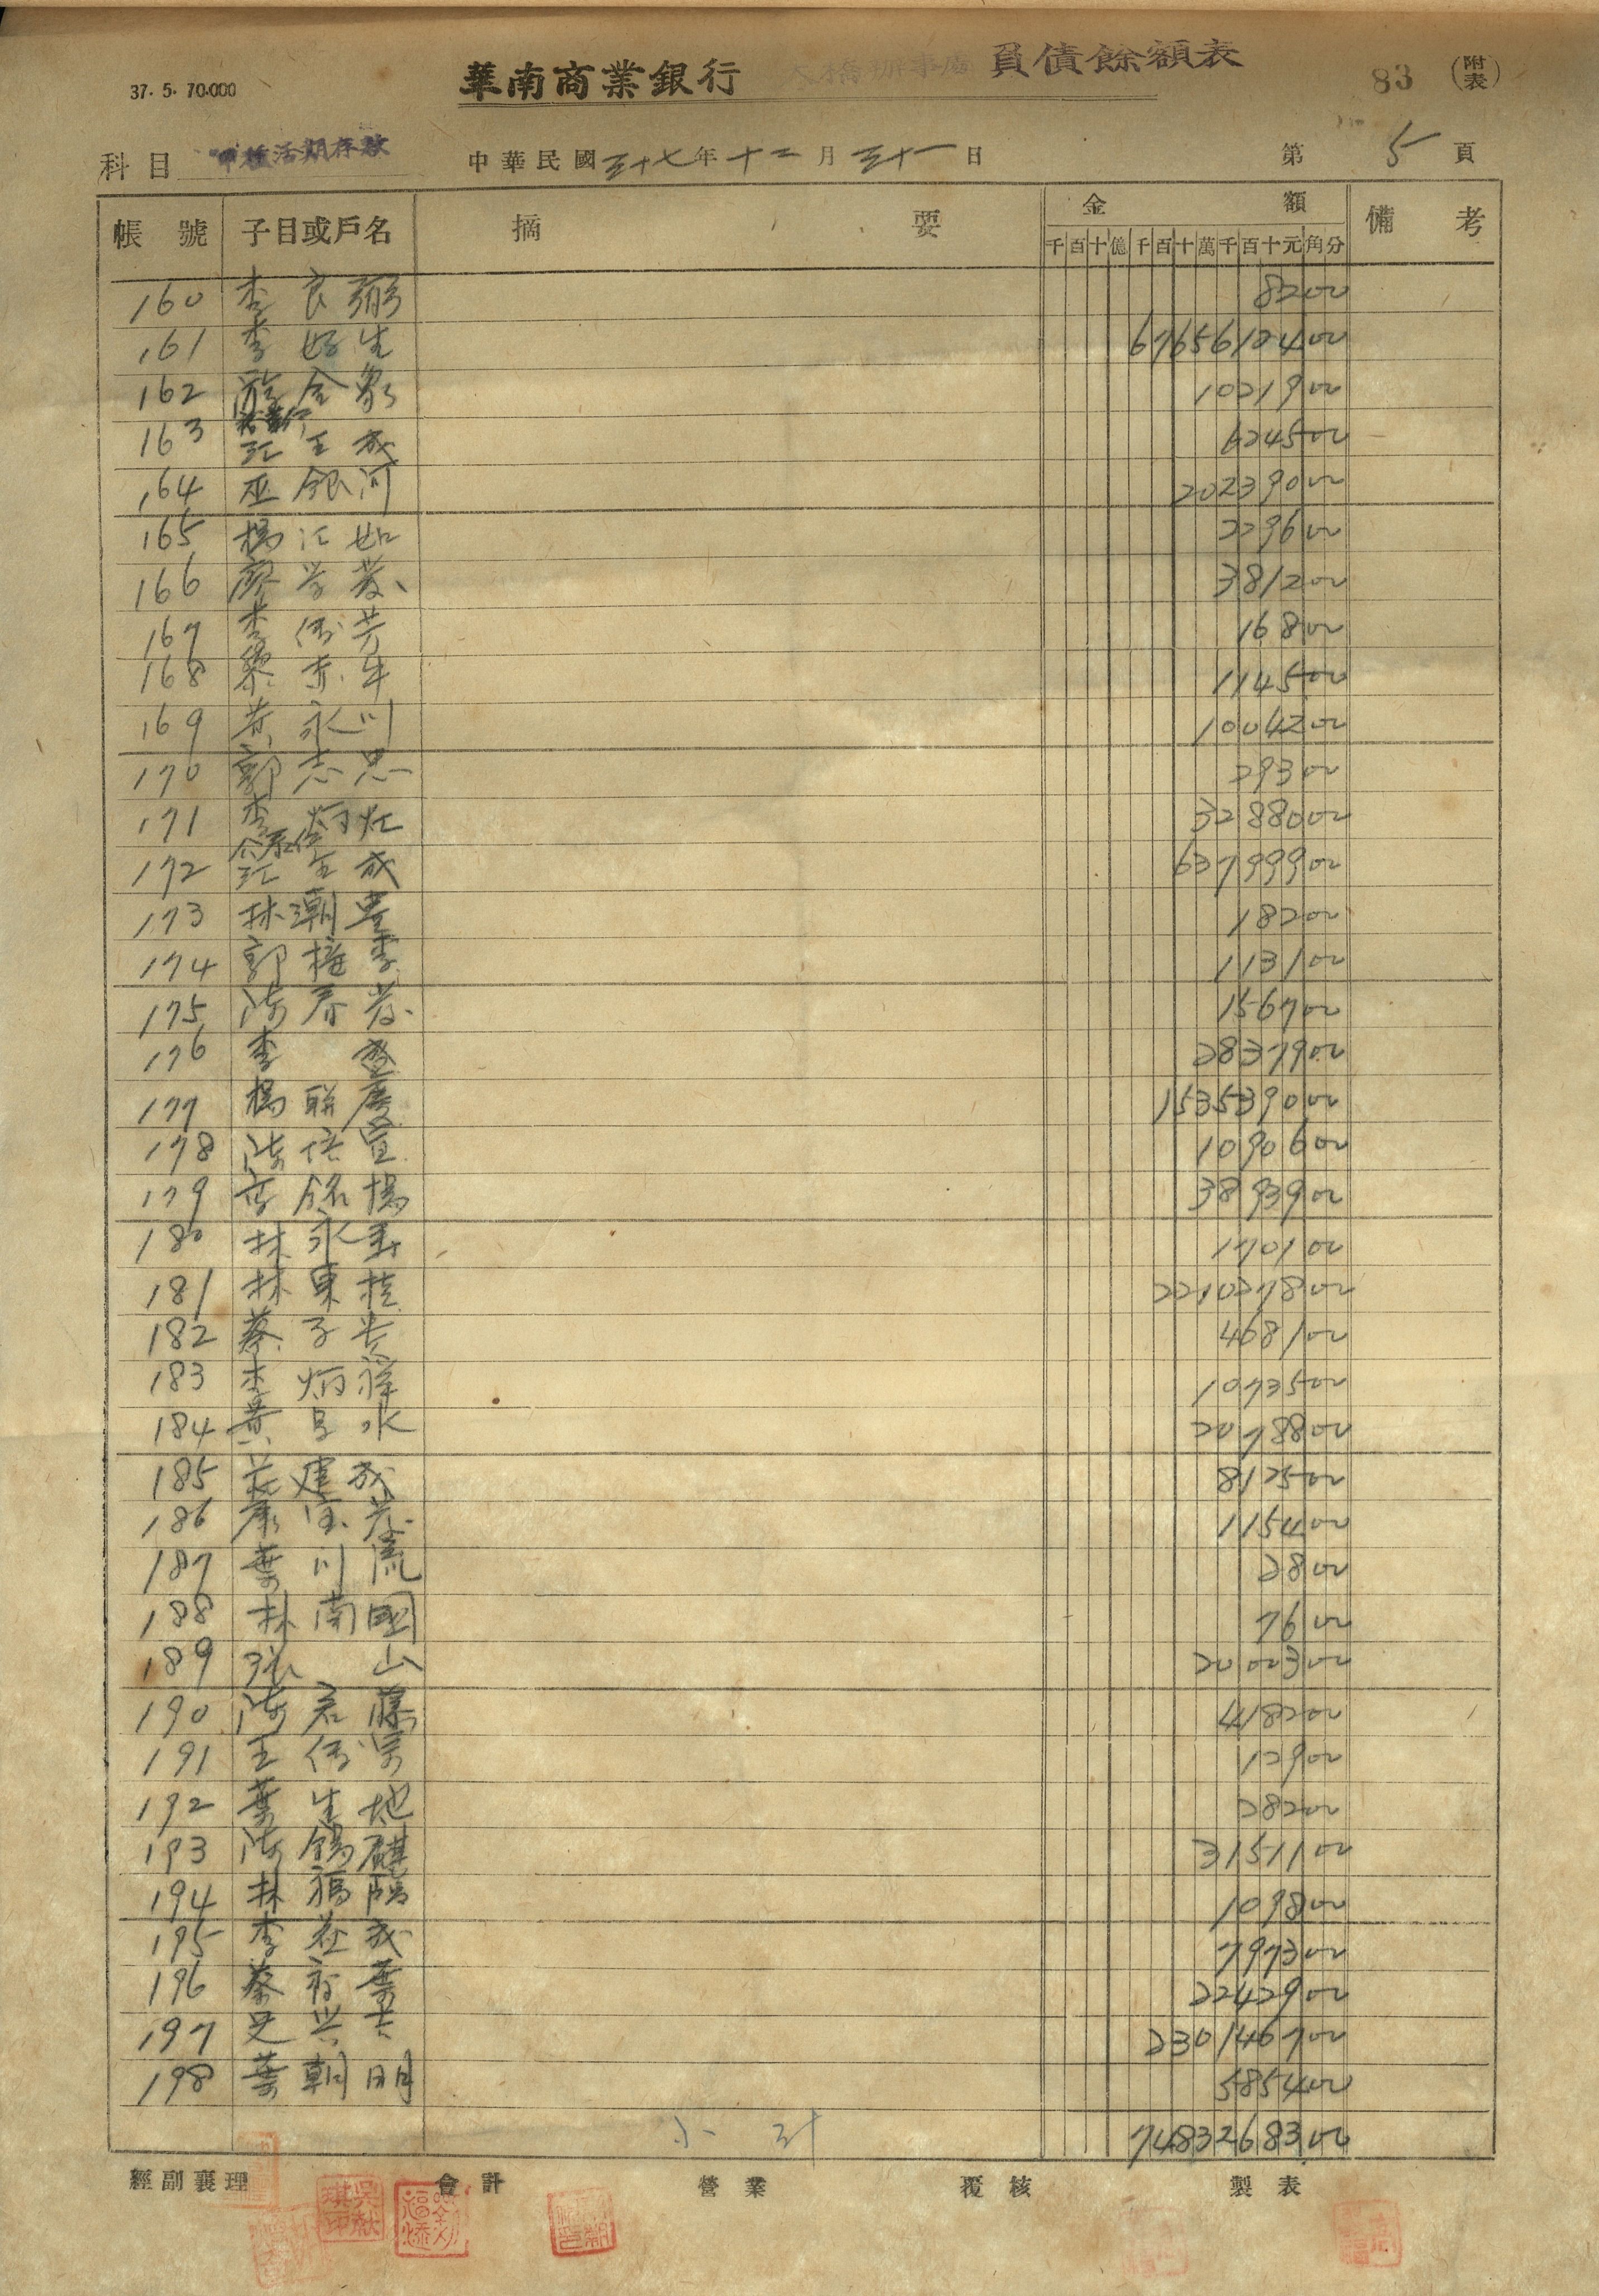 37. 5. 70.000
華南商業銀行 負債餘額表 83 (附表)
科目 甲種活期存款 中華民國三十七年十二月三十一日 第5頁
帳號 子目或戶名 摘要 金額 備考
千百十億千百十萬千百十元角分
160 李良弼 8200
161 李好生 6765610400
162 金象 1021900
163 江玉成 624500
164 巫銀河 20239000
165 楊江如 229600
166 廖学發 381200
167 李傳芳 16800
168 黎赤牛 114500
169 黃永川 1004200
170 郭志忠 29300
171 李炳灶 3288000
172 江玉成 63799900
173 林潮豊 18200
174 郭權季 113100
175 陳春發 156700
176 李盛 2837900
177 楊聯慶 153539000
178 陳信宣 1090600
179 李銘楊 3893900
180 林永 170100
181 林東桂 221027800
182 蔡子 468100
183 李炳祥 1073500
184 黃呂水 2078800
185 莊建成 812500
186 康宝發 115400
187 葉川流 2800
188 林南國 7600
189 張山 2000300
190 陳君藤 418200
191 王傳宗 12900
192 葉生地 28200
193 陳錫麒 3151100
194 林福臨 109800
195 李在成 797300
196 蔡葉 2242900
197 吳興吉 230146700
198 葉朝明 585400
小計 7483268300
經副襄理 會計 營業 覆核 製表